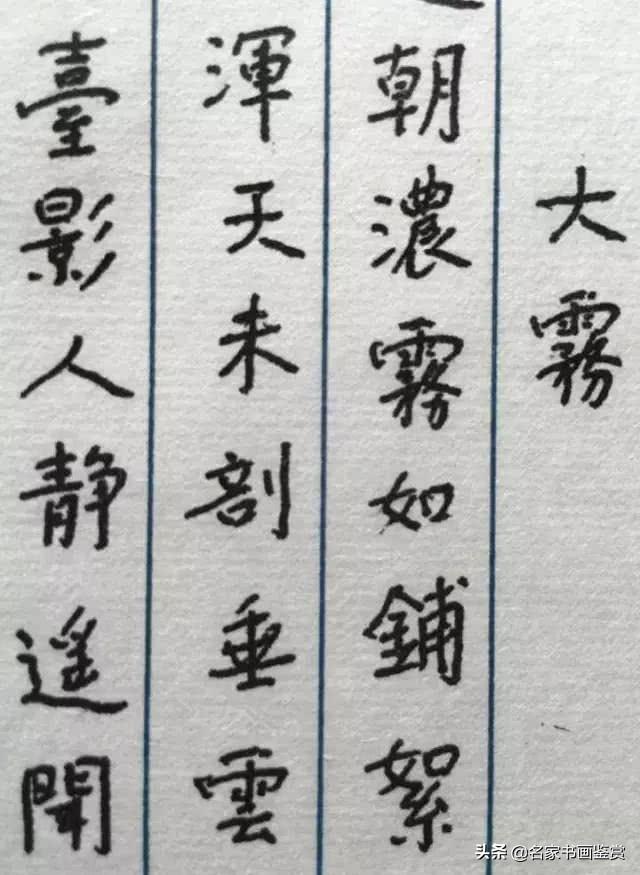 大霧
朝濃霧如鋪絮
渾天未剖垂雲
臺影人静遥聞
头条 @名家书画鉴赏